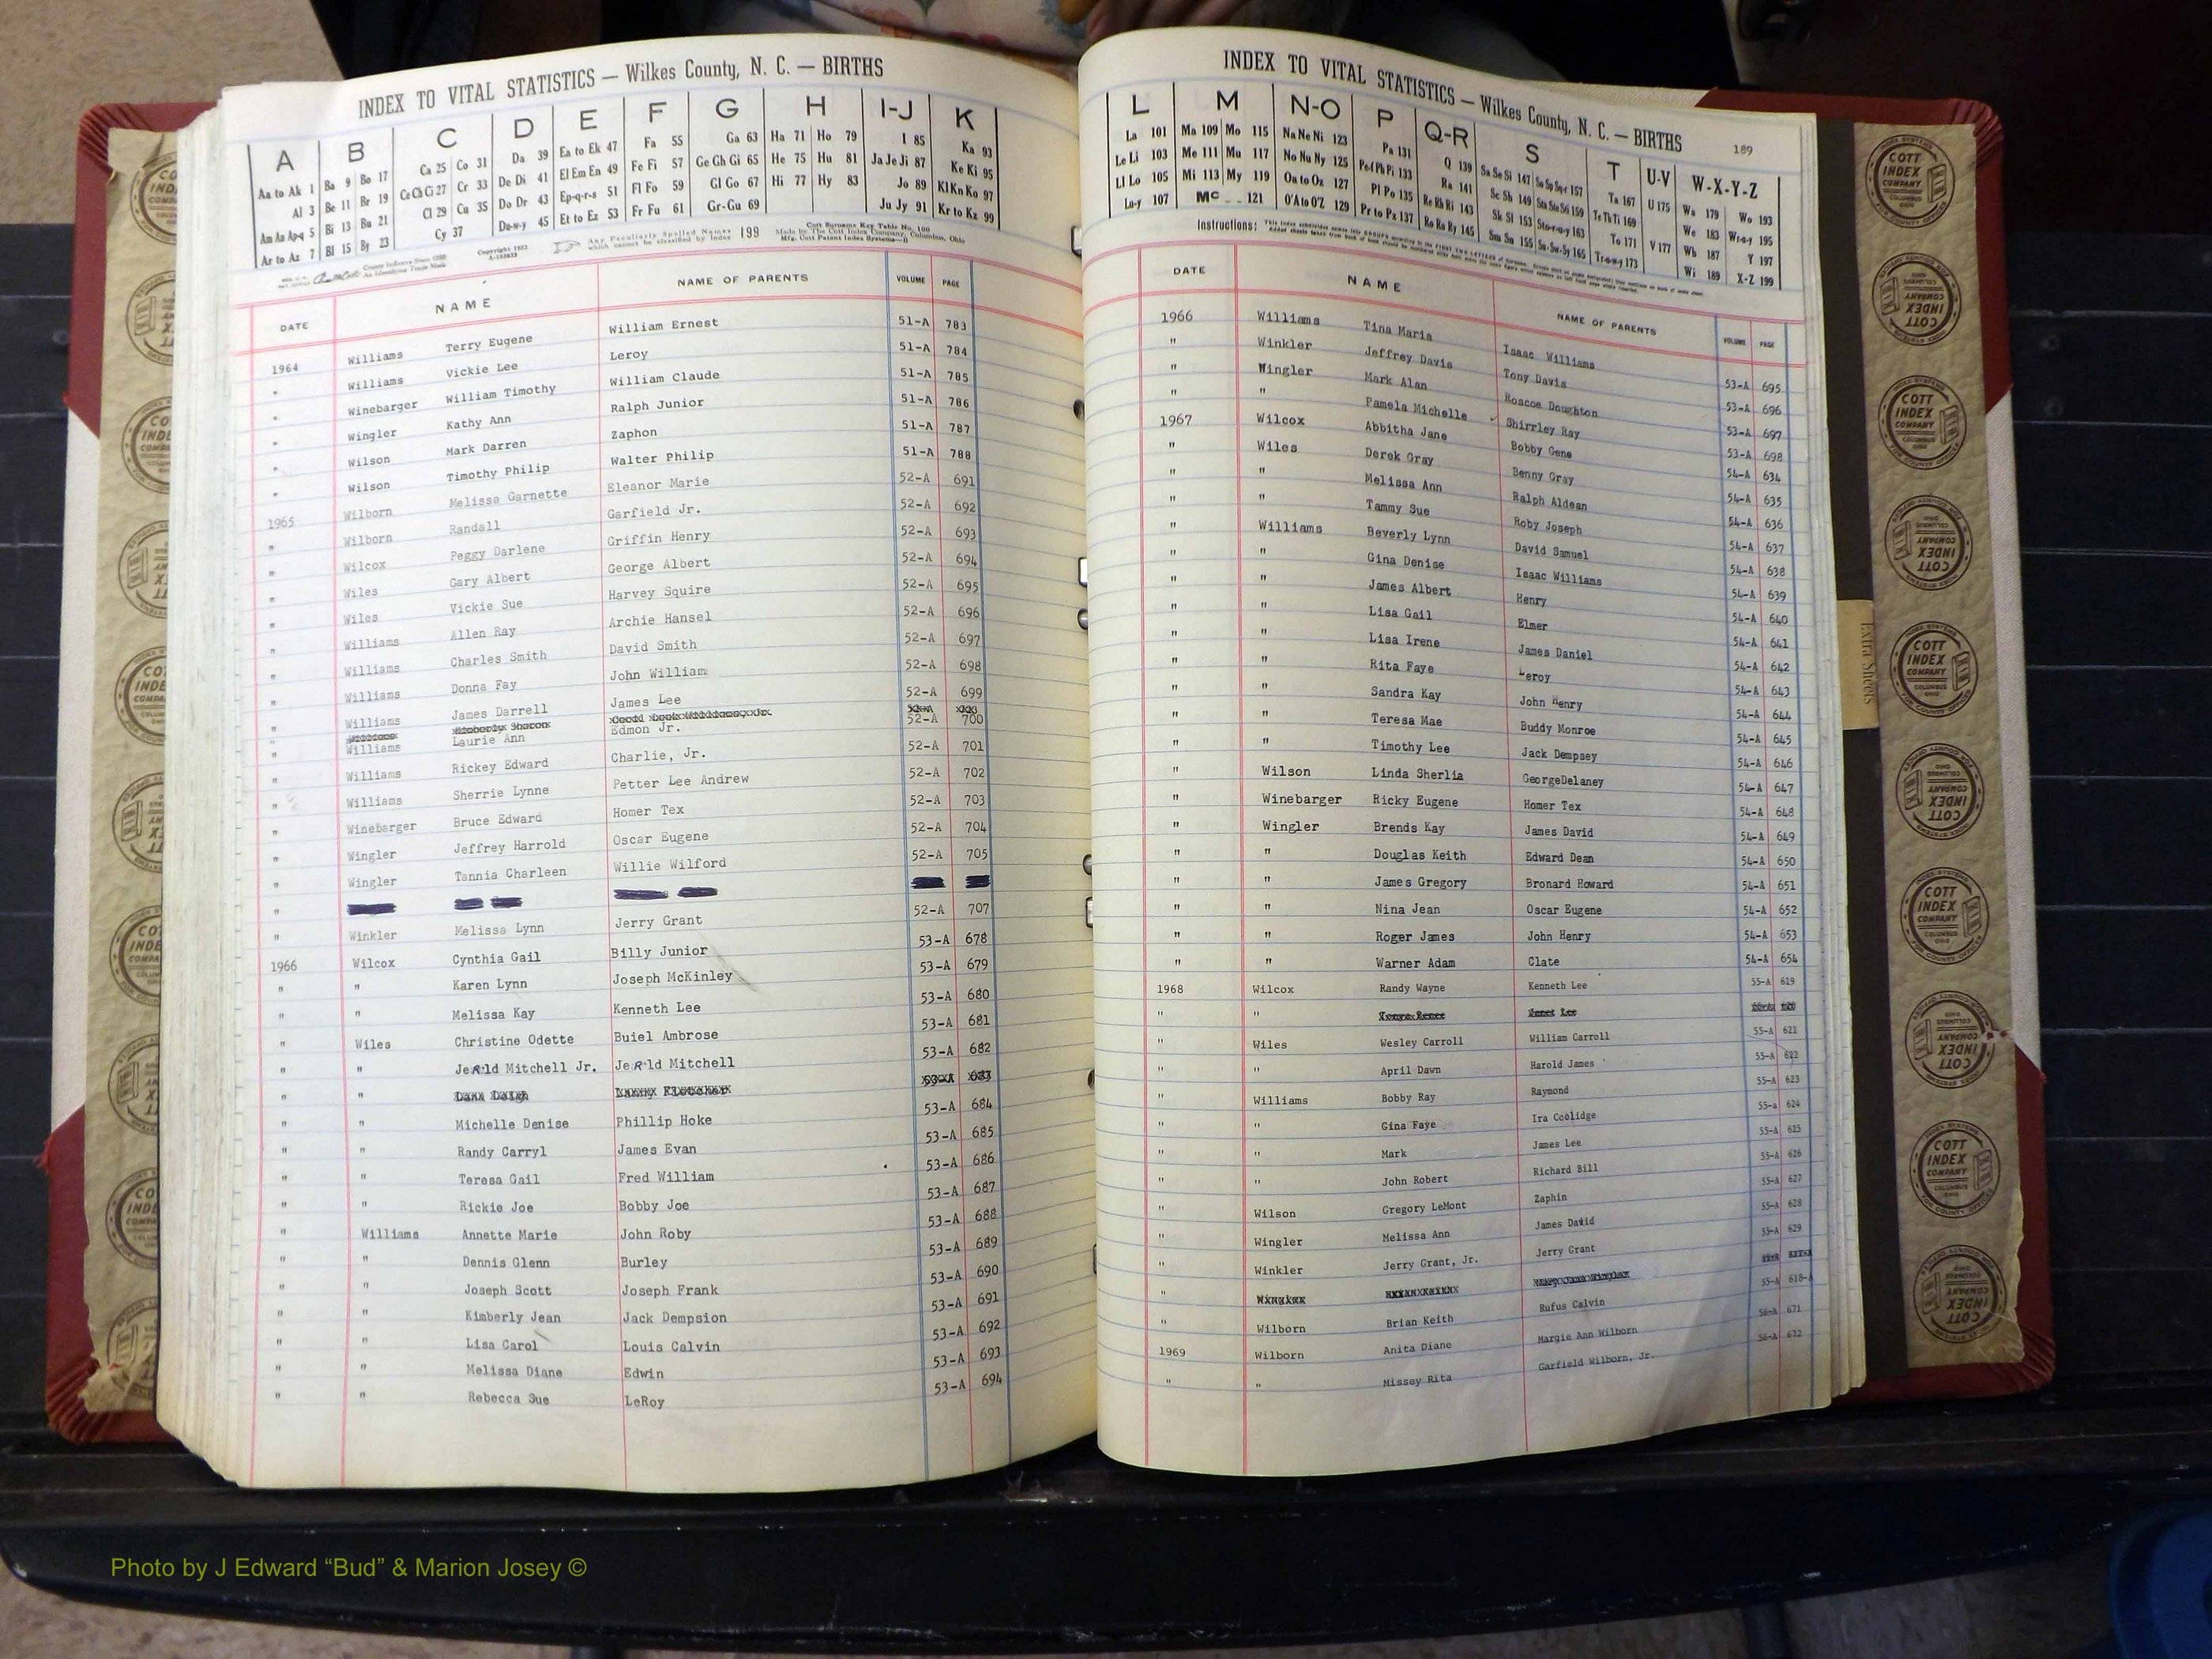 INDEX TO VITAL STATISTICS — Wilkes County, N. C. — BIRTHS
A B C D E F G H I-J K
Aa to Ak 1 Ba 9 Bo 17 Ca 25 Co 31 Da 39 Ea to Ek 47 Fa 55 Ga 63 Ha 71 Ho 79 I 85 Ka 93
Al 3 Be 11 Br 19 Ce Ch Ci 27 Cr 33 De Di 41 El Em En 49 Fe Fi 57 Ge Gh Gi 65 He 75 Hu 81 Ja Je Ji 87 Ke Ki 95
Am An Ap-q 5 Bi 13 Bu 21 Cl 29 Cu 35 Do Dr 43 Ep-q-r-s 51 Fl Fo 59 Gl Go 67 Hi 77 Hy 83 Jo 89 Kl Kn Ko 97
Ar to Az 7 Bl 15 By 23 Cy 37 Du-w-y 45 Et to Ez 53 Fr Fu 61 Gr-Gu 69 Ju Jy 91 Kr to Kz 99
Any Peculiarly Spelled Names which cannot be classified by index 199
DATE NAME NAME OF PARENTS VOLUME PAGE
1964 Williams Terry Eugene William Ernest 51-A 783
" Williams Vickie Lee Leroy 51-A 784
" Winebarger William Timothy William Claude 51-A 785
" Wingler Kathy Ann Ralph Junior 51-A 786
" Wilson Mark Darren Zaphon 51-A 787
" Wilson Timothy Philip Walter Philip 51-A 788
1965 Wilborn Melissa Garnette Eleanor Marie 52-A 691
" Wilborn Randall Garfield Jr. 52-A 692
" Wilcox Peggy Darlene Griffin Henry 52-A 693
" Wiles Gary Albert George Albert 52-A 694
" Wiles Vickie Sue Harvey Squire 52-A 695
" Williams Allen Ray Archie Hansel 52-A 696
" Williams Charles Smith David Smith 52-A 697
" Williams Donna Fay John William 52-A 698
" Williams James Darrell James Lee 52-A 699
" Williams Laurie Ann Edmon Jr. 52-A 700
" Williams Rickey Edward Charlie, Jr. 52-A 701
" Williams Sherrie Lynne Petter Lee Andrew 52-A 702
" Winebarger Bruce Edward Homer Tex 52-A 703
" Wingler Jeffrey Harrold Oscar Eugene 52-A 704
" Wingler Tannia Charleen Willie Wilford 52-A 705
"
" Winkler Melissa Lynn Jerry Grant 52-A 707
1966 Wilcox Cynthia Gail Billy Junior 53-A 678
" " Karen Lynn Joseph McKinley 53-A 679
" " Melissa Kay Kenneth Lee 53-A 680
" Wiles Christine Odette Buiel Ambrose 53-A 681
" " JeRld Mitchell Jr. JeRld Mitchell 53-A 682
" "
" " Michelle Denise Phillip Hoke 53-A 684
" " Randy Carryl James Evan 53-A 685
" " Teresa Gail Fred William 53-A 686
" " Rickie Joe Bobby Joe 53-A 687
" Williams Annette Marie John Roby 53-A 688
" " Dennis Glenn Burley 53-A 689
" " Joseph Scott Joseph Frank 53-A 690
" " Kimberly Jean Jack Dempsion 53-A 691
" " Lisa Carol Louis Calvin 53-A 692
" " Melissa Diane Edwin 53-A 693
" " Rebecca Sue LeRoy 53-A 694
INDEX TO VITAL STATISTICS — Wilkes County, N. C. — BIRTHS 189
L M N-O P Q-R S T U-V W-X-Y-Z
La 101 Ma 109 Mo 115 Na Ne Ni 123 Pa 131 Q 139 Sa Se Si 147 So Sp Sq-r 157 Ta 167 U 175 Wa 179 Wo 193
Le Li 103 Me 111 Mu 117 No Nu Ny 125 Pe-f Ph Pi 133 Ra 141 Sc Sh 149 Sta Ste Sti 159 Te Th Ti 169 We 183 Wr-u-y 195
Ll Lo 105 Mi 113 My 119 Oa to Oz 127 Pl Po 135 Re Rh Ri 143 Sk Sl 153 Sto-r-u-y 163 To 171 V 177 Wh 187 Y 197
Lu-y 107 Mc 121 O'A to O'Z 129 Pr to Pz 137 Ro Ru Ry 145 Sm Sn 155 Su-Sw-Sy 165 Tr-u-w-y 173 Wi 189 X-Z 199
Instructions:
DATE NAME NAME OF PARENTS VOLUME PAGE
1966 Williams Tina Maria Isaac Williams 53-A 695
" Winkler Jeffrey Davis Tony Davis 53-A 696
" Wingler Mark Alan Roscoe Doughton 53-A 697
" " Pamela Michelle Shirrley Ray 53-A 698
1967 Wilcox Abbitha Jane Bobby Gene 54-A 634
" Wiles Derek Gray Benny Gray 54-A 635
" " Melissa Ann Ralph Aldean 54-A 636
" " Tammy Sue Roby Joseph 54-A 637
" Williams Beverly Lynn David Samuel 54-A 638
" " Gina Denise Isaac Williams 54-A 639
" " James Albert Henry 54-A 640
" " Lisa Gail Elmer 54-A 641
" " Lisa Irene James Daniel 54-A 642
" " Rita Faye Leroy 54-A 643
" " Sandra Kay John Henry 54-A 644
" " Teresa Mae Buddy Monroe 54-A 645
" " Timothy Lee Jack Dempsey 54-A 646
" Wilson Linda Sherlia GeorgeDelaney 54-A 647
" Winebarger Ricky Eugene Homer Tex 54-A 648
" Wingler Brends Kay James David 54-A 649
" " Douglas Keith Edward Dean 54-A 650
" " James Gregory Bronard Howard 54-A 651
" " Nina Jean Oscar Eugene 54-A 652
" " Roger James John Henry 54-A 653
" " Warner Adam Clate 54-A 654
1968 Wilcox Randy Wayne Kenneth Lee 55-A 619
" "
" Wiles Wesley Carroll William Carroll 55-A 621
" " April Dawn Harold James 55-A 622
" Williams Bobby Ray Raymond 55-A 623
" " Gina Faye Ira Coolidge 55-a 624
" " Mark James Lee 55-A 625
" " John Robert Richard Bill 55-A 626
" Wilson Gregory LeMont Zaphin 55-A 627
" Wingler Melissa Ann James David 55-A 628
" Winkler Jerry Grant, Jr. Jerry Grant 55-A 629
"
" Wilborn Brian Keith Rufus Calvin 55-A 618-A
1969 Wilborn Anita Diane Margie Ann Wilborn 56-A 671
" " Missey Rita Garfield Wilborn, Jr. 56-A 672
Extra Sheets
COTT INDEX COMPANY COLUMBUS OHIO
Photo by J Edward “Bud” & Marion Josey ©